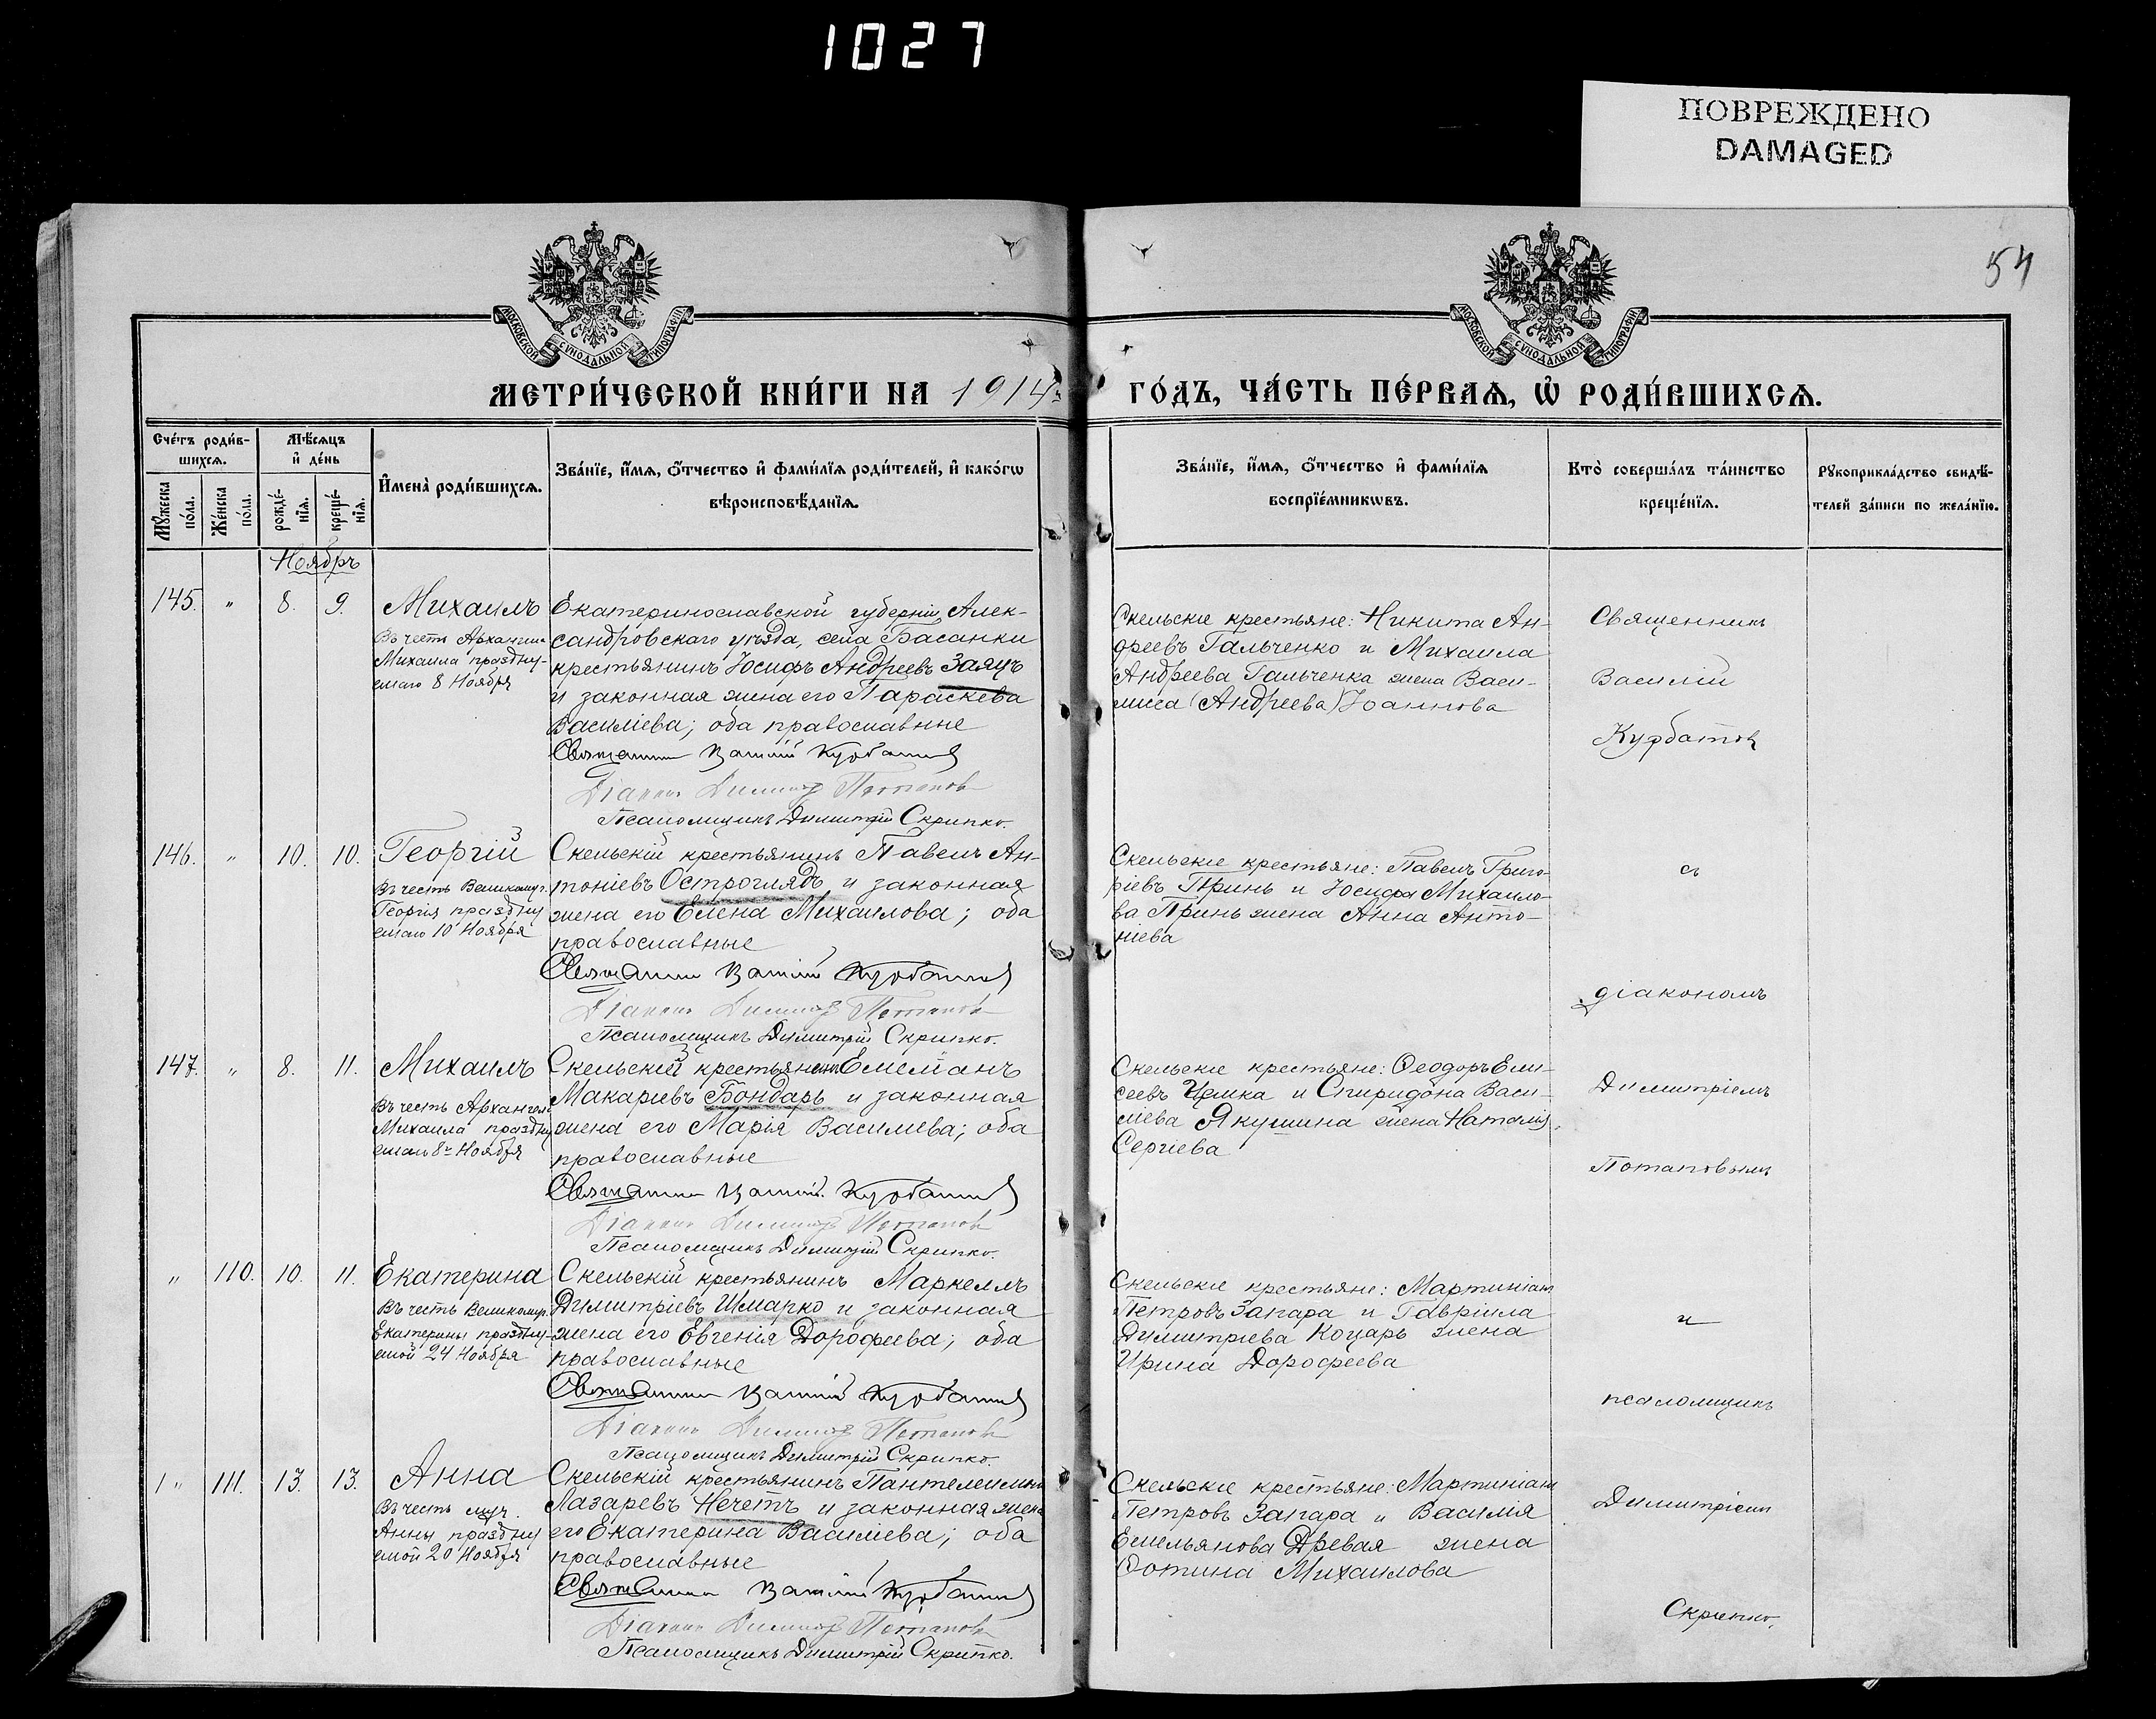 1027
ПОВРЕЖДЕНО
DAMAGED
54
МОСКОВСКОЙ СУНОДАЛЬНОЙ ТИПОГРАФІИ
МОСКОВСКОЙ СУНОДАЛЬНОЙ ТИПОГРАФІИ
МЕТРИ́ЧЕСКОЙ КНИ́ГИ НА 1914 г.
ГО́ДЪ, ЧА́СТЬ ПЕ́РВАѦ, Ѡ҆ РОДИ́ВШИХСѦ.
Сче́тъ роди́в-
шихсѧ.
Мꙋ́жеска
по́ла.
Же́нска
по́ла.
Мѣ́сѧцъ
и҆ де́нь
рожде́-
нїѧ.
креще́-
нїѧ.
И҆мена̀ роди́вшихсѧ.
Зва́нїе, и҆́мѧ, ѻ҆́тчество и҆ фами́лїѧ роди́телей, и҆ како́гѡ
вѣроисповѣ́данїѧ.
Зва́нїе, и҆́мѧ, ѻ҆́тчество и҆ фами́лїѧ
воспрїе́мникѡвъ.
Кто̀ соверша́лъ та́инство
креще́нїѧ.
Рꙋкоприкла́дство свидѣ́-
телей за́писи по жела́нїю.
Ноябрь
145. " 8. 9. Михаилъ
Въ честь Архангела
Михаила праздну-
емаго 8 Ноября
Екатеринославской губерніи, Алек-
сандровскаго уѣзда, села Басанки
крестьянинъ Іосифъ Андреевъ Заяцъ
и законная жена его Параскева
Василіева; оба православные
Священникъ Василій Курбатовъ
Діаконъ Димитрій Потаповъ
Псаломщикъ Димитрій Скрипко.
Скельскіе крестьяне: Никита Ан-
дреевъ Гальченко и Михаила
Андреева Гальченка жена Васи-
лисса (Андреева) Іоаннова
Священникъ
Василій
Курбатовъ
146. " 10. 10. Георгій
Въ честь Великомуч.
Георгія праздну
емаго 10 Ноября
Скельскій крестьянинъ Павелъ Ан-
тоніевъ Остроглядъ и законная
жена его Елена Михаилова; оба
православные
Священникъ Василій Курбатовъ
Діаконъ Димитрій Потаповъ
Псаломщикъ Димитрій Скрипко.
Скельскіе крестьяне: Павелъ Григо-
ріевъ Принь и Іосифа Михаило-
ва Принь жена Анна Анто-
ніева
съ
діакономъ
147. " 8. 11. Михаилъ
Въ честь Архангела
Михаила праздну
емаго 8го Ноября
Скельскій крестьянинъ Емеліанъ
Макаріевъ Бондарь и законная
жена его Марія Василіева; оба
православные
Священникъ Василій Курбатовъ
Діаконъ Димитрій Потаповъ
Псаломщикъ Димитрій Скрипко.
Скельскіе крестьяне: Ѳеодоръ Ели-
сеевъ и Спиридона Васи-
ліева Якушина жена Наталія
Сергіева
Димитріемъ
Потаповымъ
" 110. 10. 11. Екатерина
Въ честь Великомуч.
Екатерины праздну-
емой 24 Ноября
Скельскій крестьянинъ Маркеллъ
Димитріевъ Шмарко и законная
жена его Евгенія Дорофеева; оба
православные
Священникъ Василій Курбатовъ
Діаконъ Димитрій Потаповъ
Псаломщикъ Димитрій Скрипко.
Скельскіе крестьяне: Мартиніанъ
Петровъ Запара и Гавріила
Димитріева Коцарь жена
Ирина Дорофеева
и
псаломщикъ
1 " 111. 13. 13. Анна
Въ честь муч.
Анны праздну
емой 20 Ноября
Скельскій крестьянинъ Пантелеимонъ
Лазаревъ Нечетъ и законная жена
его Екатерина Василіева; оба
православные
Священникъ Василій Курбатовъ
Діаконъ Димитрій Потаповъ
Псаломщикъ Димитрій Скрипко.
Скельскіе крестьяне: Мартиніанъ
Петровъ Запара и Василія
Емельянова Древая жена
Фотина Михаилова
Димитріемъ
Скрипко.